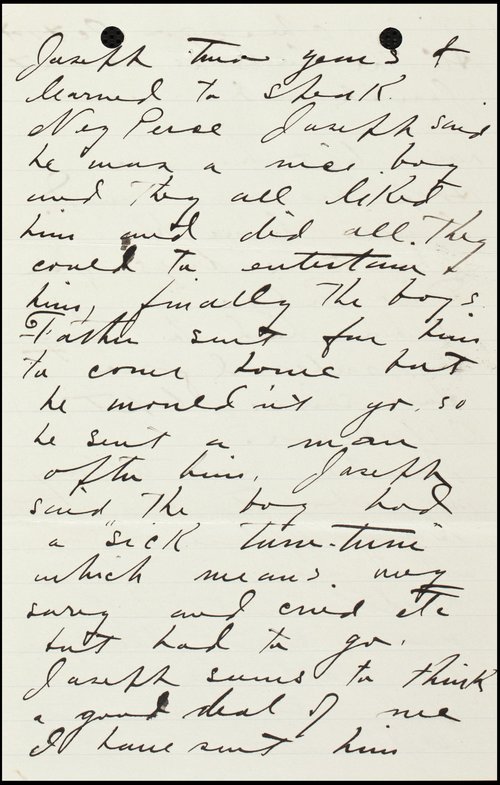 Joseph two years &
learned to speak
Nez Perse Joseph said
he was a nice boy
and they all liked
him and did all they
could to entertain
him, finally the boys
Father sent for him
to come home but
he would n't go. so
he sent a man
after him. Joseph
said the boy had
a "sick tum-tum"
which means very
sorry and cried etc
but had to go.
Joseph seems to think
a good deal of me
I have sent him